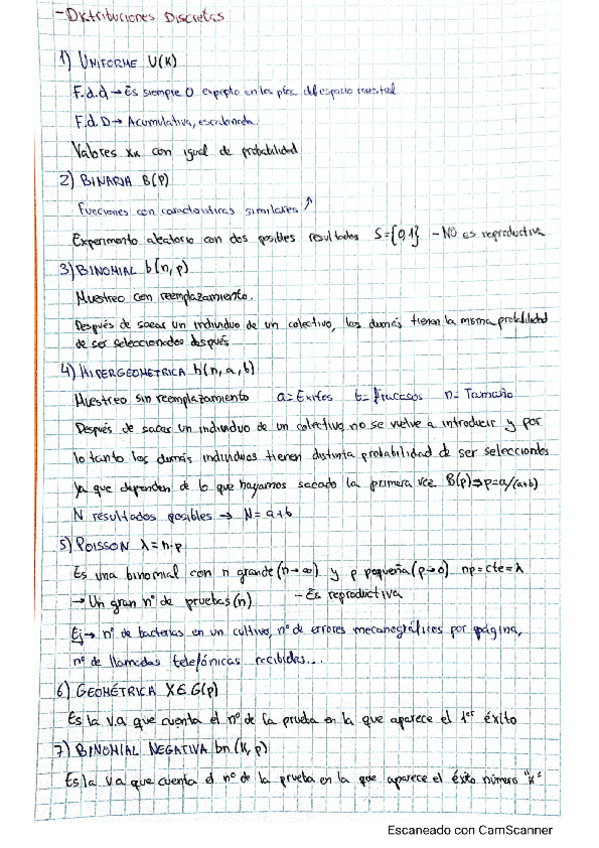 - Distribuciones Discretas
1) UNIFORME U(K)
F.d.d → Es siempre 0 excepto en los ptos. del espacio muestral
F.d.D → Acumulativa, escalonada.
Valores xk con igual de probabilidad
2) BINARIA B(P)
Funciones con características similares ↑
Experimento aleatorio con dos posibles resultados S={0,1} - NO es reproductiva
3) BINOMIAL b(n,p)
Muestreo con reemplazamiento.
Después de sacar un individuo de un colectivo, los demás tienen la misma probabilidad
de ser seleccionados después
4) HIPERGEOMETRICA h(n,a,b)
Muestreo sin reemplazamiento a=Exitos b=fracasos n=Tamaño
Después de sacar un individuo de un colectivo no se vuelve a introducir y por
lo tanto los demás individuos tienen distinta probabilidad de ser seleccionados
ya que dependen de lo que hayamos sacado la primera vez. B(p)⇒p=a/(a+b)
N resultados posibles → N=a+b
5) POISSON λ=n·p
Es una binomial con n grande (n→∞) y p pequeña (p→0) np=cte=λ
→ Un gran nº de pruebas (n) - Es reproductiva
Ej → nº de bacterias en un cultivo, nº de errores mecanográficos por página,
nº de llamadas telefónicas recibidas...
6) GEOMÉTRICA X∈G(p)
Es la v.a que cuenta el nº de la prueba en la que aparece el 1er éxito
7) BINOMIAL NEGATIVA bn(K,p)
Es la v.a que cuenta el nº de la prueba en la que aparece el éxito número "k"
Escaneado con CamScanner